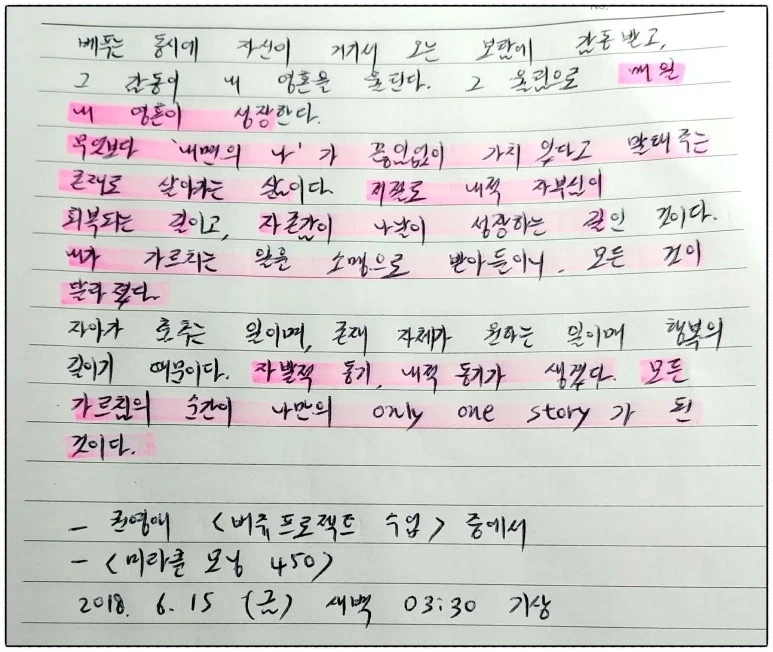 No.
베푸는 동시에 자신이 거기서 오는 보람에 감동받고,
그 감동이 내 영혼을 울린다. 그 울림으로 매일
내 영혼이 성장한다.
무엇보다 '내면의 나'가 끊임없이 가치 있다고 말해주는
존재로 살아가는 삶이다. 저절로 내적 자부심이
회복되는 길이고, 자존감이 나날이 성장하는 길인 것이다.
내가 가르치는 일을 소명으로 받아들이니, 모든 것이
달라졌다.
자아가 춤추는 일이며, 존재 자체가 원하는 일이며 행복의
길이기 때문이다. 자발적 동기, 내적 동기가 생겼다. 모든
가르침의 순간이 나만의 only one story가 된
것이다.
- 권영애 <버츄프로젝트 수업> 중에서
- <미라클 모닝 450>
2018. 6. 15 (금) 새벽 03:30 기상